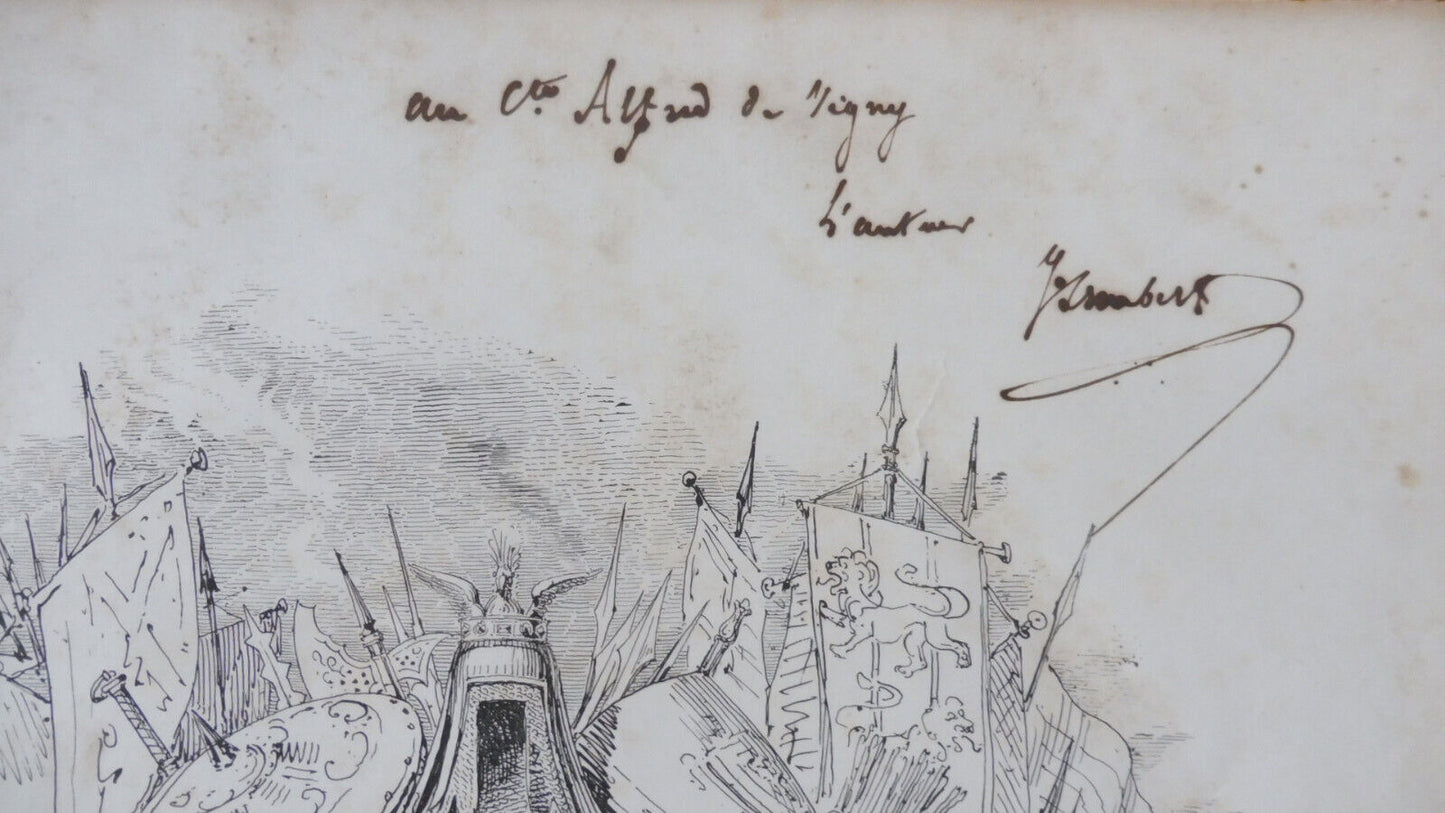 au Cte Alfred de Vigny
L'auteur
J Imbert